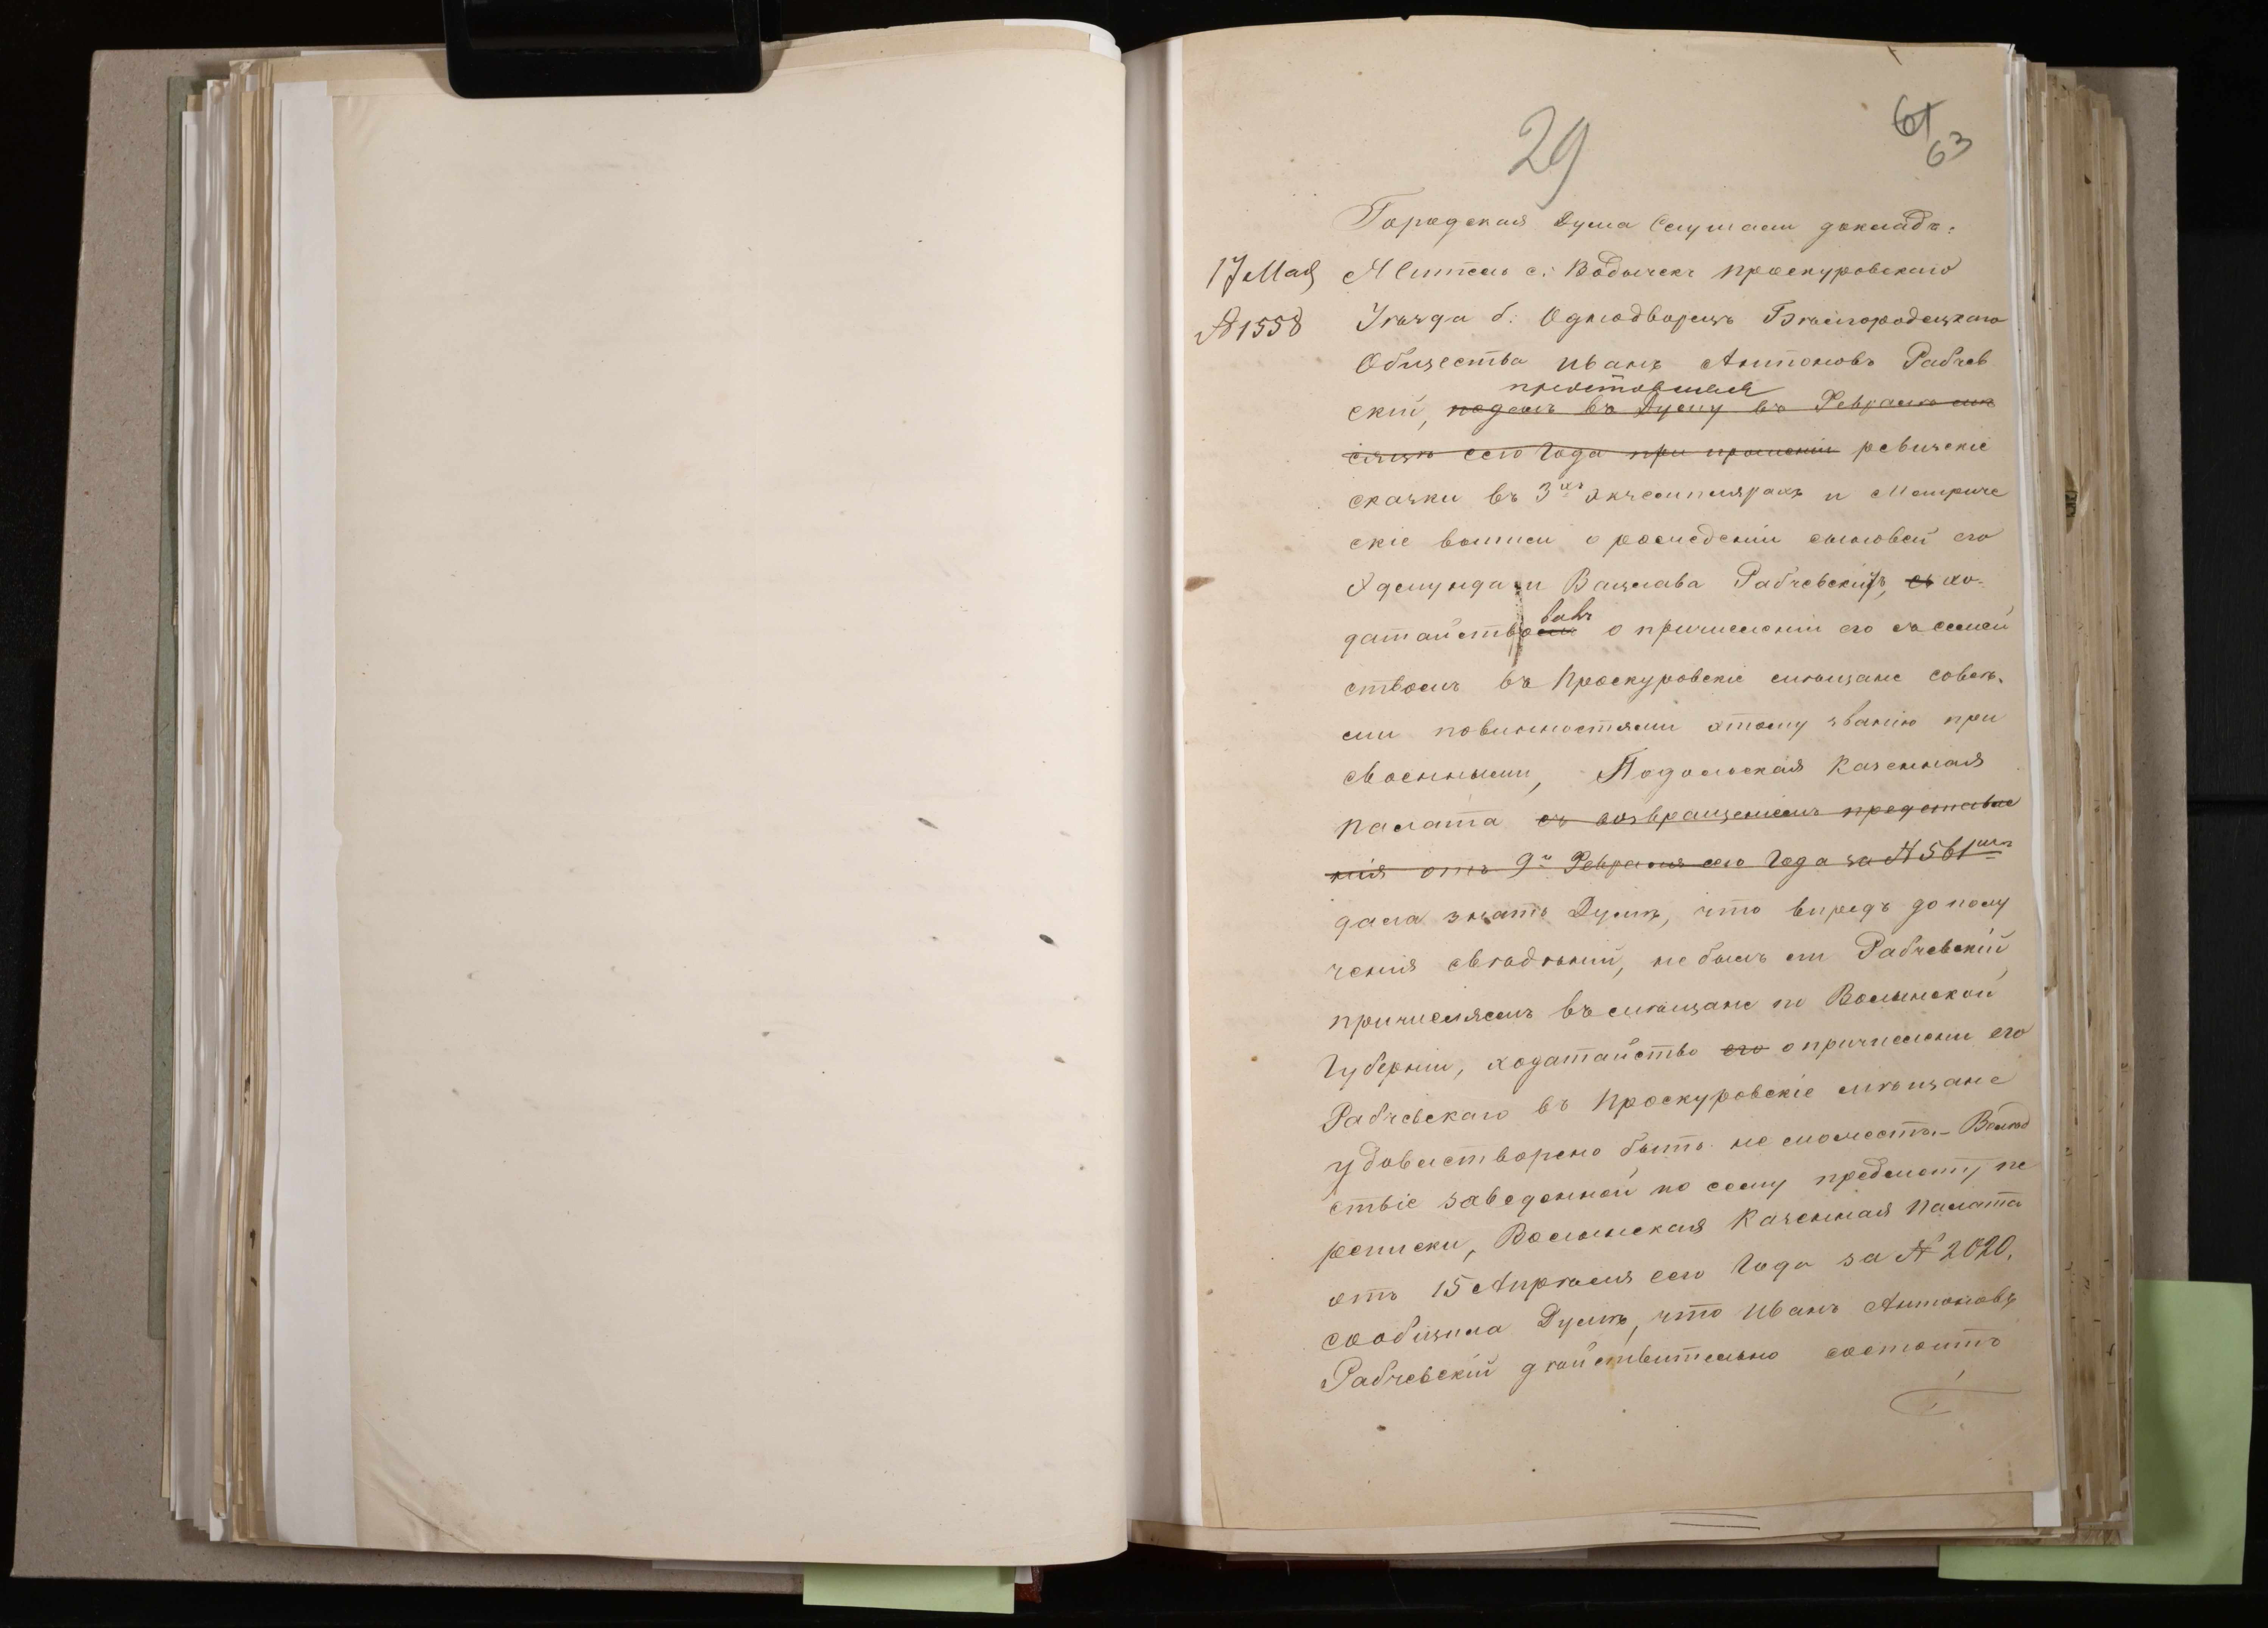 29
61
63
Городская Дума Слушали докладъ:
17 Мая
№ 1558
Житель с. Водычекъ Проскуровскаго
Уѣзда б. Однодворецъ Бѣлгородецкаго
Общества Иванъ Антоновъ Рабчев
представляя
скій, подалъ въ Думу въ Февралѣ мѣ
сяцѣ сего Года при прошеніи ревизскіе
сказки въ 3хъ экземплярахъ и Метриче
скіе выписи о рожденіи сыновей его
Эдмунда и Вацлава Рабчевскихъ, съ хо-
вавъ
датайство о причисленіи его съ семей
ствомъ въ Проскуровскіе мѣщане со всѣ-
ми повинностями этому званію при
своенными, Подольская Казенная
Палата съ возвращеніемъ представле
нія отъ 9го Февраля сего Года за № 561мъ
дала знать Думѣ, что впредь до полу
ченія свѣдѣній, не былъ ли Рабчевскій
причисляемъ въ мѣщане по Волынской
Губерніи, ходатайство его о причислении его
Рабчевскаго въ Проскуровскіе мѣщане
удовлетворено быть не можетъ. Вслѣд
ствіе заведенной по сему предмету пе
реписки, Волынская Казенная Палата
отъ 15 Апрѣля сего Года за № 2020,
сообщила Думѣ, что Иванъ Антоновъ
Рабчевскій дѣйствительно состоитъ